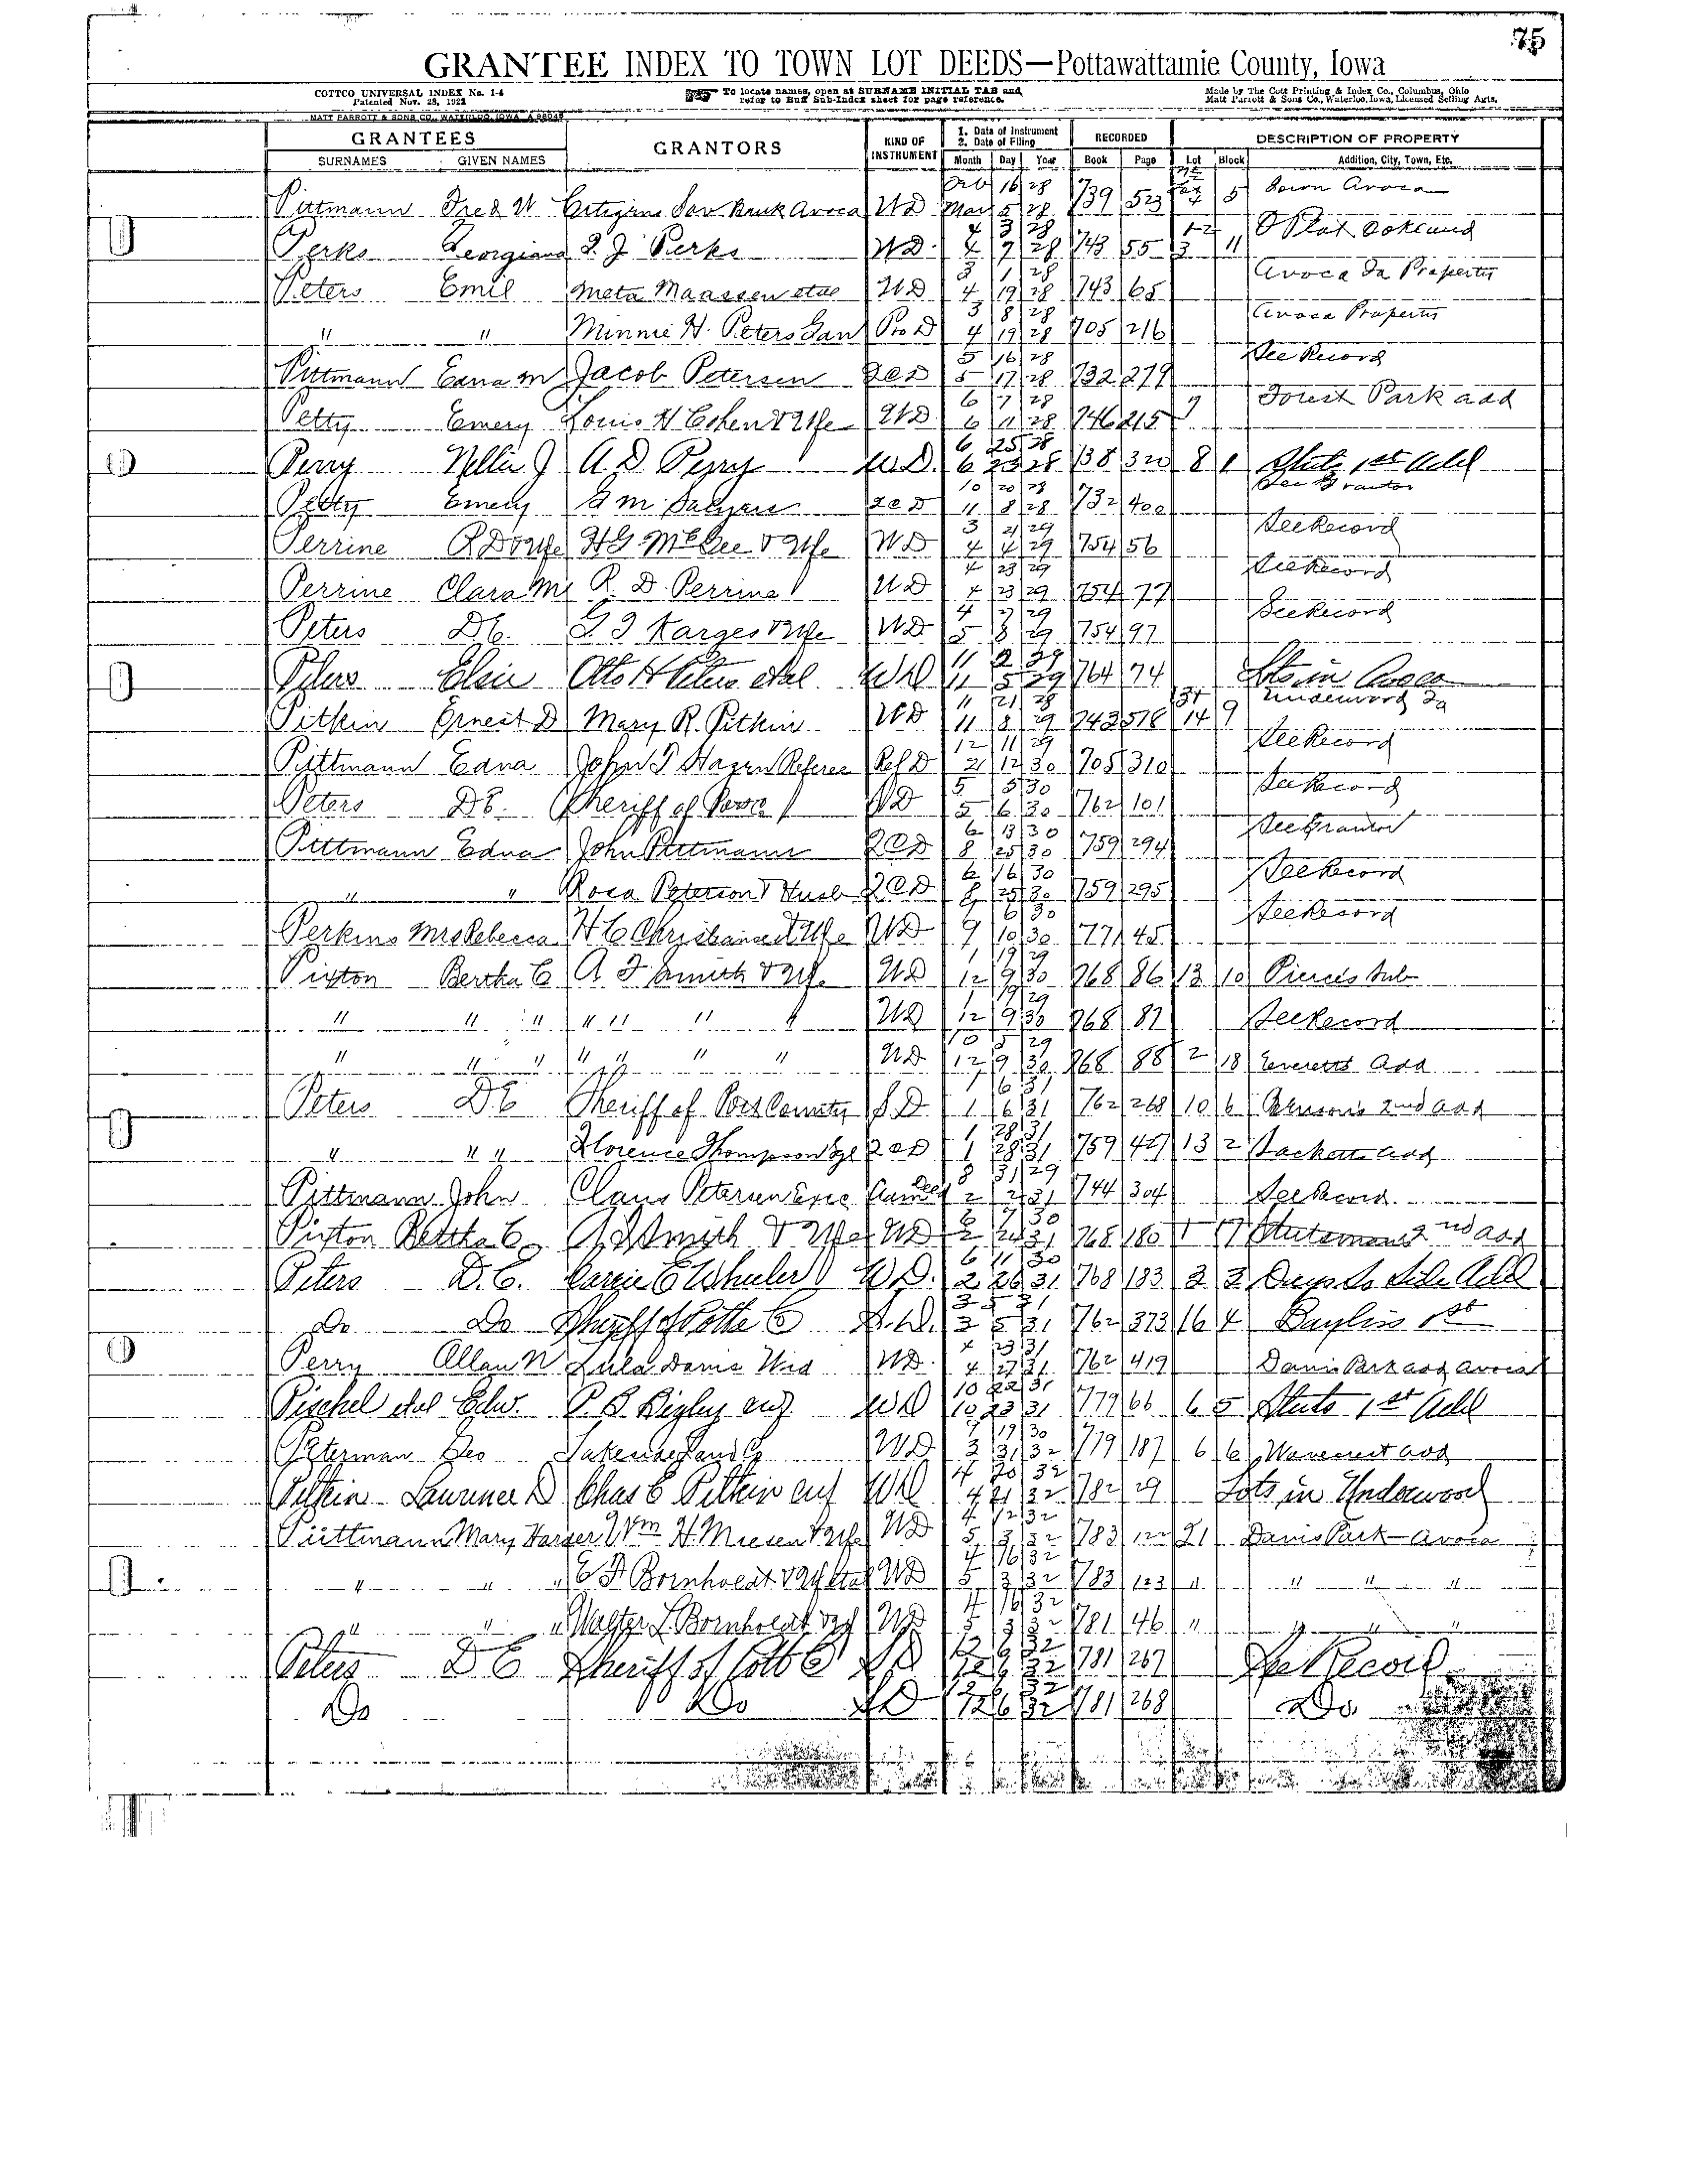 75
GRANTEE INDEX TO TOWN LOT DEEDS—Pottawattamie County, Iowa
COTTCO UNIVERSAL INDEX No. 1-4
Patented Nov. 28, 1922
To locate names, open at SURNAME INITIAL TAB and
refer to Buff Sub-Index sheet for page reference.
Made by The Cott Printing & Index Co., Columbus, Ohio
Matt Parrott & Sons Co., Waterloo, Iowa, Licensed Selling Agts.
MATT PARROTT & SONS CO., WATERLOO, IOWA
GRANTEES GRANTORS KIND OF INSTRUMENT 1. Date of Instrument 2. Date of Filing RECORDED DESCRIPTION OF PROPERTY
SURNAMES GIVEN NAMES Month Day Year Book Page Lot Block Addition, City, Town, Etc.
Feb 16 28
Pittmann Fred W Citizens Sav Bank Avoca WD Mar 5 28 739 523 4 5 Town Avoca
4 3 28 1-2
Perks Georgiana J Perks WD 4 9 28 743 55 3 11 O Plat Oakland
3 1 28
Peters Emil Meta Maassen etal WD 4 19 28 743 65 Avoca Ia Property
3 8 28
" " Minnie H. Peters Gan 4 19 28 705 216 Avoca Property
5 16 28
Pittmann Edna M Jacob Petersen QCD 5 17 28 732 279 See Record
6 7 28
Petty Emery Louis H Cohen & Wife WD 6 11 28 746 215 9 Forest Park add
6 25 28
Perry Nellie J A. D. Perry W.D. 6 28 738 320 8 1 Stuts 1st Add
10 20 28
Petty Emery M. Salyers QCD 11 8 28 732 400 See Grantor
3 21 29
Perrine R D & Wife H G McGee & Wife WD 4 4 29 754 56 See Record
4 23 29
Perrine Clara M R. D. Perrine WD 4 23 29 754 77 See Record
4 29
Peters D E. Karges & Wife WD 5 8 29 754 97 See Record
11 2 29
Peters Elsie Otto H Peters etal WD 11 5 29 764 74 Lots in Avoca
11 21 28 13+
Pitkin Ernest D Mary R. Pitkin WD 11 8 29 743 578 14 9 Underwood Ia
12 11 29
Pittmann Edna John Hazen Referee Ref D 12 30 705 310 See Record
5 5 30
Peters D E. Sheriff of D 5 6 30 762 101 See Record
6 13 30
Pittmann Edna John Pittmann QCD 8 25 30 759 294 See Grantor
6 16 30
" " Rosa Peterson & Husb QCD 8 25 30 759 295 See Record
6 30
Perkins Mrs Rebecca H C Christiansen & Wife WD 9 10 30 771 45 See Record
1 19 29
Pixton Bertha C A J Smith & Wife WD 12 9 30 768 86 13 10 Pierces Sub
1 19 29
" " " " " " " WD 12 9 30 768 87 See Record
10 5 29
" " " " " " " WD 12 9 30 768 88 2 18 Everetts Add
1 6 31
Peters D E Sheriff of Pott County S D. 1 6 31 762 268 10 6 Bensons 2nd add
1 28 31
" " " Florence Thompson QCD 1 28 31 759 427 13 2 Sackett add
8 31 29
Pittmann John Claus Petersen Exec 2 2 31 744 304 See Record
6 7 30
Pixton Bertha C A J Smith & Wife WD 2 24 31 768 180 1 17 Stutsmans 2nd add
6 11 30
Peters D. E. Carrie E Wheeler WD. 2 26 31 768 183 2 3 Days So Side Add
3 5 31
Do Do Sheriff of Potta Co S.D. 3 5 31 762 373 16 4 Bayliss 1st
4 23 31
Perry Allan N Lula Davis Wid WD. 4 27 31 762 419 Davis Park add Avoca
10 22 31
Pischel etal Edw. P. B. Bigley WD 10 23 31 779 66 6 5 Stuts 1st Add
9 19 30
Peterman Geo Lakeside Land Co WD 3 31 32 779 187 6 6 Wavecrest add
4 20 32
Pitkin Lawrence D Chas E Pitkin WD 4 21 32 782 29 Lots in Underwood
4 12 32
Püttmann Mary Wm H. Miesen & Wife WD 5 3 32 783 122 21 Davis Park—Avoca
4 16 32
" " " E F Bornholdt & Wf etal WD 5 3 32 783 123 " " " "
4 16 32
" " " Walter L Bornholdt & Wf WD 5 3 32 781 46 " " " "
12 6 32
Peters D E Sheriff of Pott Co S D 12 6 32 781 267 See Record
Do Do S D 12 6 32 781 268 Do.